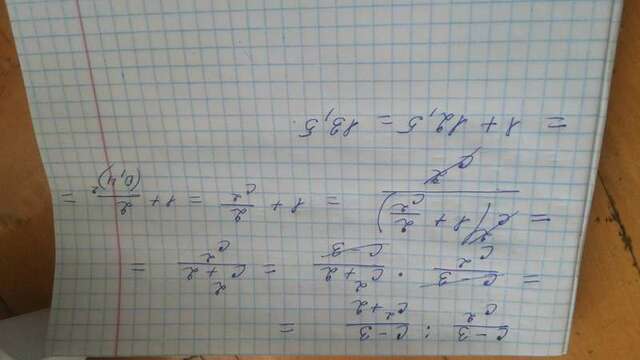 (c-3)/c² : (c-3)/(c²+2) =
= (c-3)/c² · (c²+2)/(c-3) = (c²+2)/c² =
= c²(1+2/c²)/c² = 1+2/c² = 1+2/(0,4)² =
= 1+12,5 = 13,5.